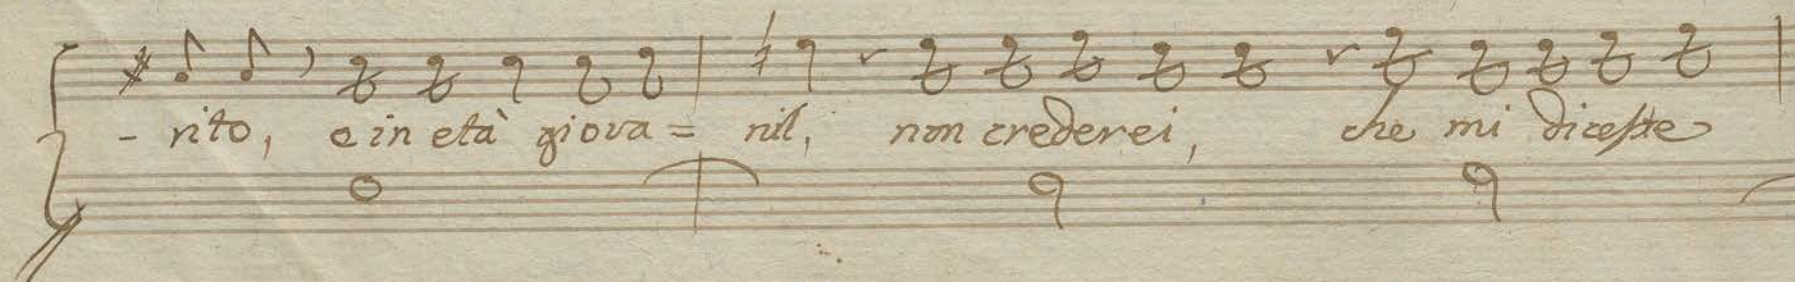 - rito, e in età giova= nil, non crederei, che mi diceste